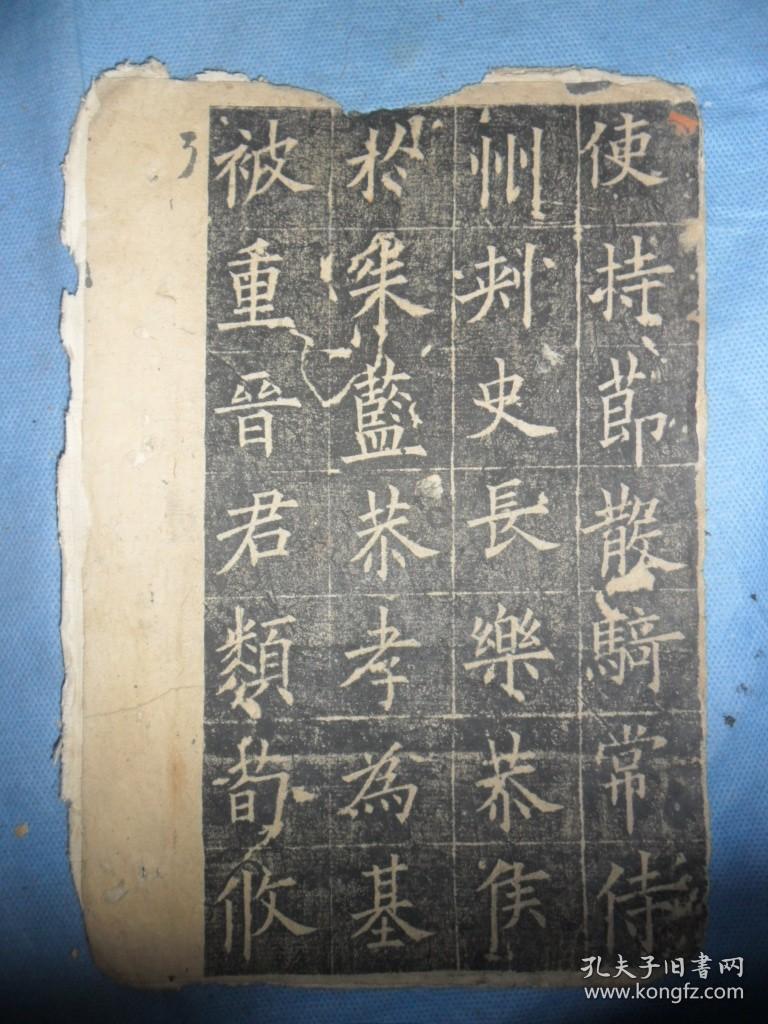 使持節散騎常侍
州刺史長樂恭侯
於采藍恭孝為基
被重晉君類荀攸
孔夫子旧書网
www.kongfz.com